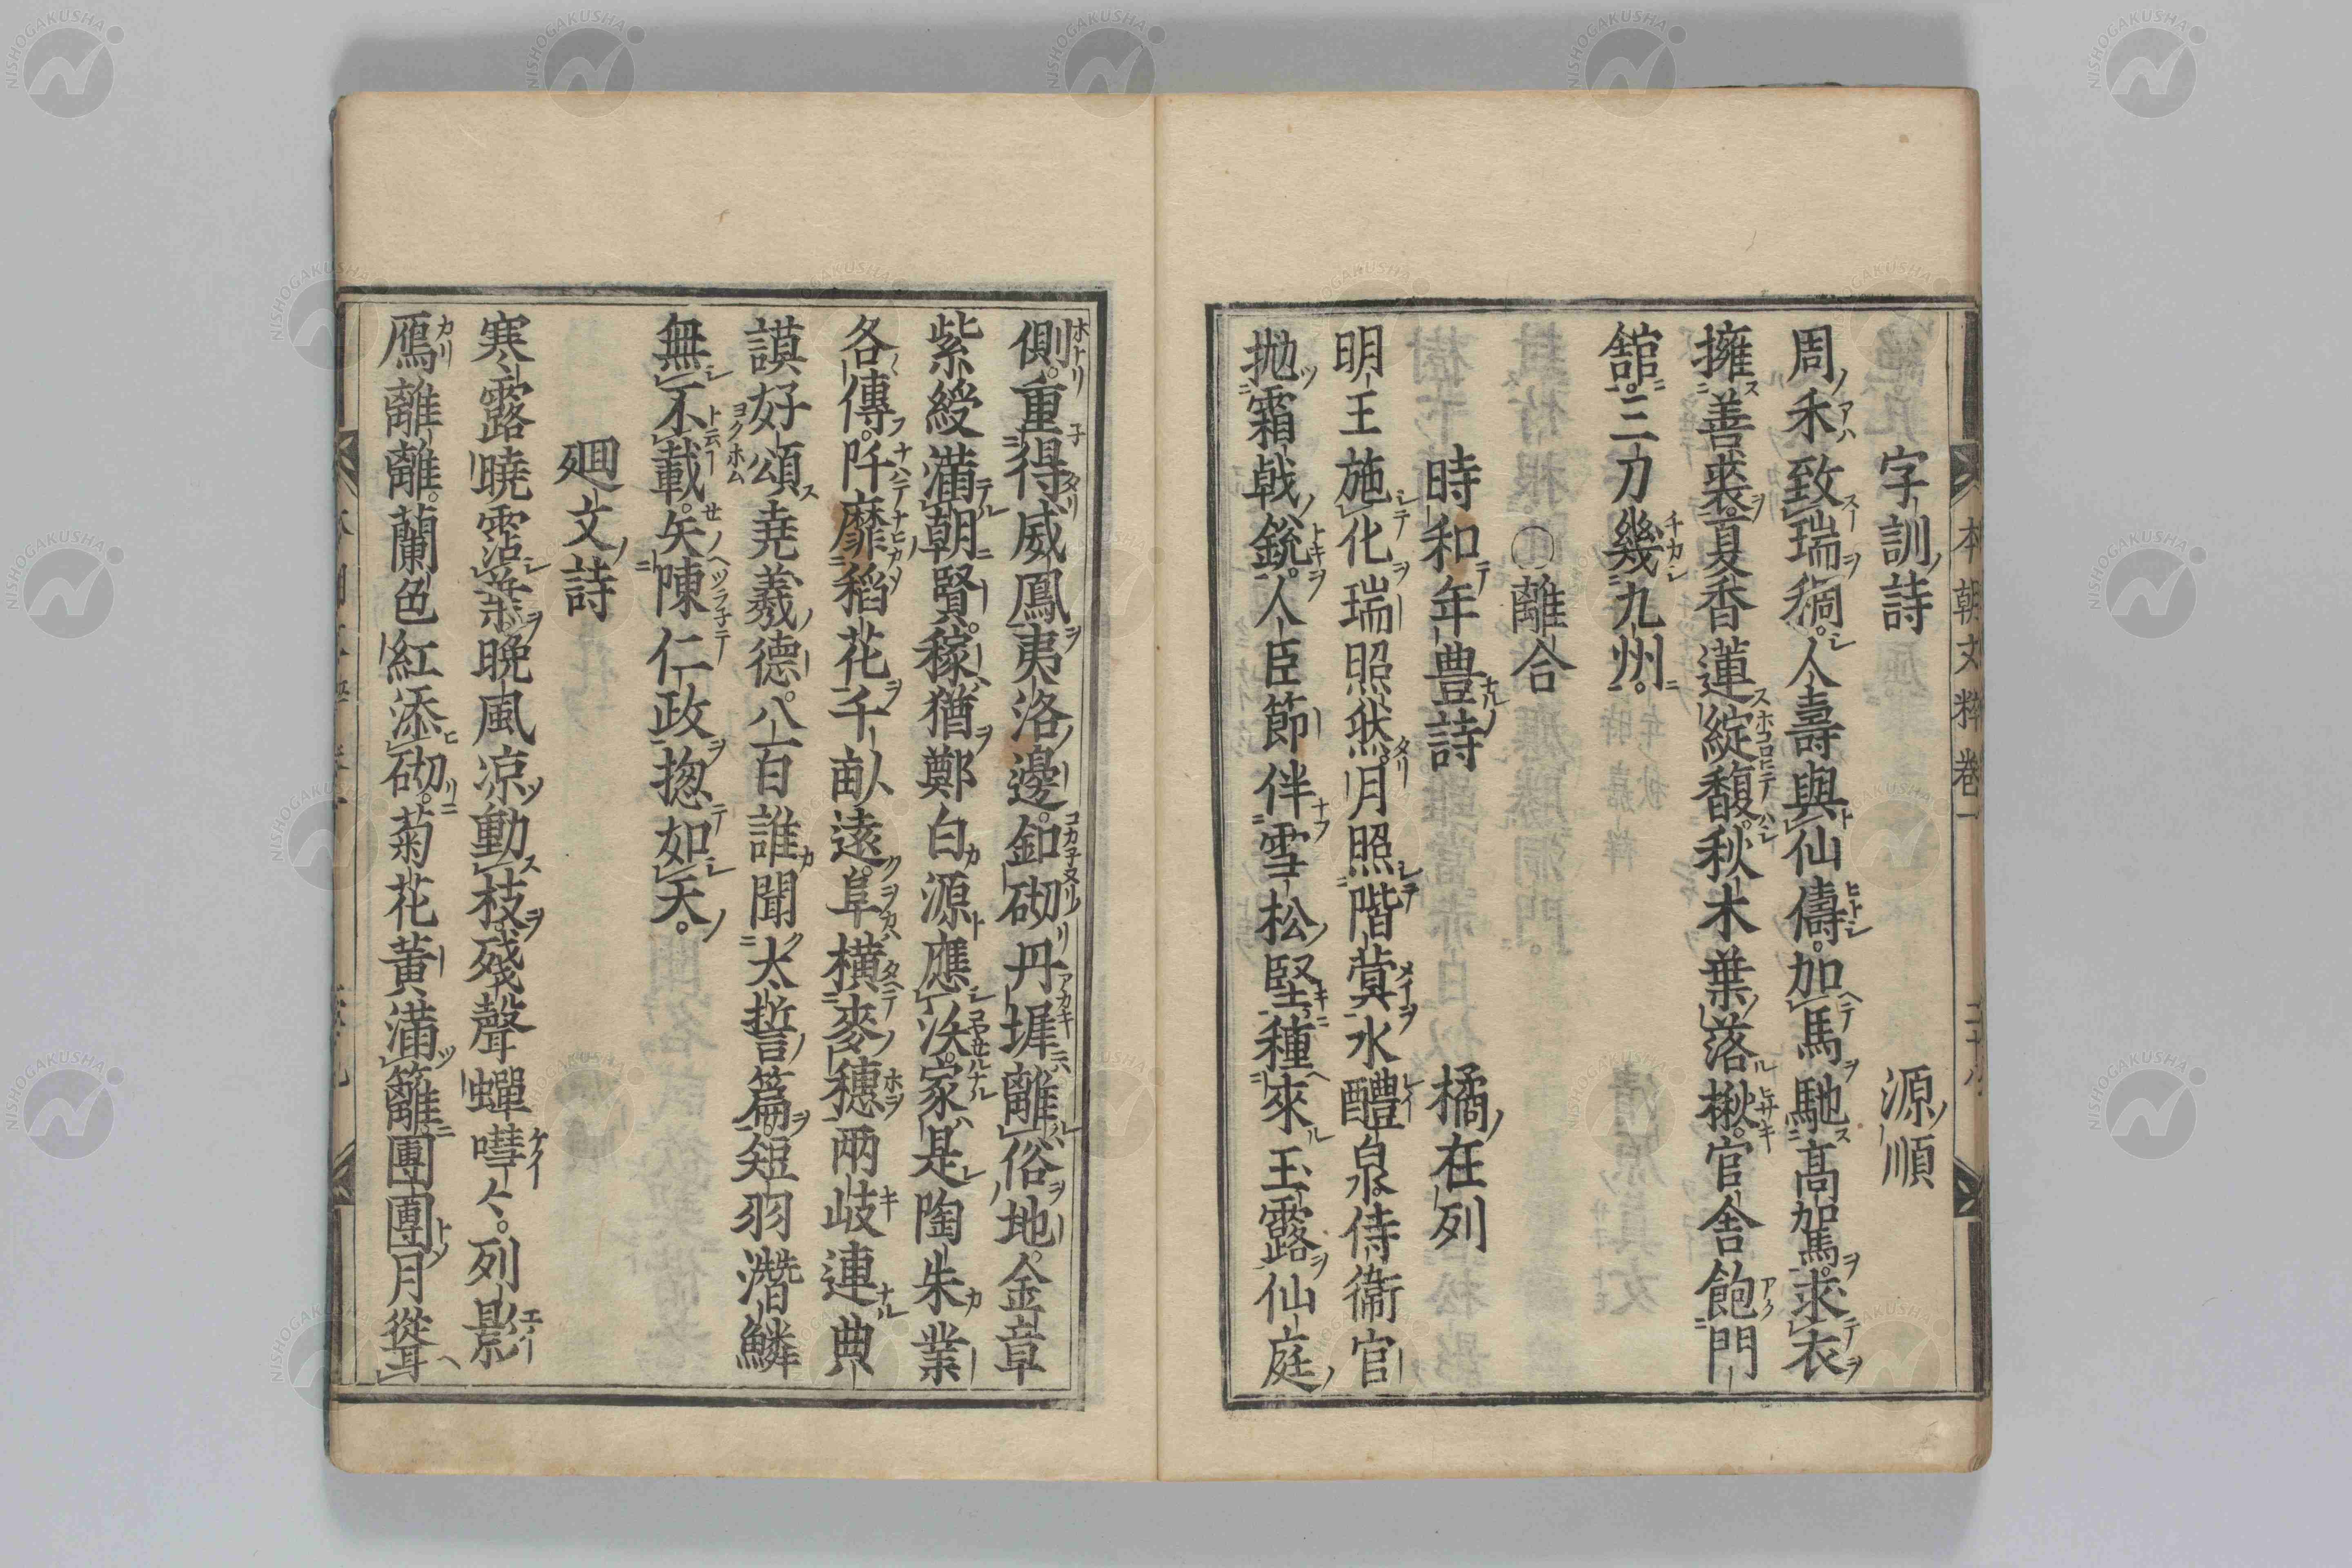 字訓詩 源順
周禾致瑞稠。人壽與仙儔。加馬馳高駕。求衣
擁善裘。夏香蓮綻馥。秋木葉落楸。官舍飽門
舘。三刀幾九州。
○離合
時和年豊詩 橘在列
明王施化瑞照然。月照階蓂水醴泉。侍衞官
抛霜戟銃。人臣節伴雪松堅。種來玉露仙庭
側。重得威鳳夷洛邊。釦砌丹墀離俗地。金章
紫綬滿朝賢。稼猶鄭白源應浅。家是陶朱業
各傳。阡靡稻花千畝遠。阜横麥穗兩岐連。典
謨好頌堯羲德。八百誰聞太誓篇。短羽潛鱗
無不載。矢陳仁政揔如天。
廻文詩
寒露曉霑葉。晩風凉動枝。殘聲蟬嘒々。列影
鴈離離。蘭色紅添砌。菊花黃滿籬。團團月聳
本朝文粹卷一